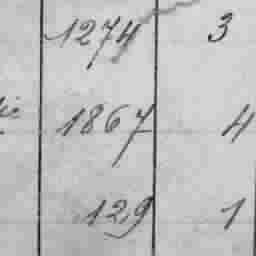 1274 3
1867 4
129 1